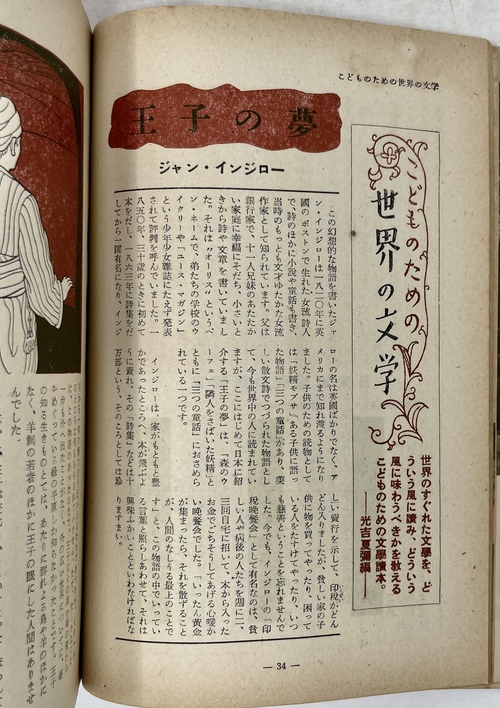 こどものための世界の文学
こどものための
世界の文学
世界のすぐれた文學を、ど
ういう風に讀み、どういう
風に味わうべきかを教える
こどものための文學讀本。
――光吉夏彌編――
王子の夢
ジャン・インジロー
この幻想的な物語を書いたジャ
ン・インジローは一八二〇年に英
國のボストンで生れた女流詩人
で、詩のほかに小説や童話も書き、
当時のもっとも文才ゆたかな女流
作家として知られています。父は
銀行家で、十一人兄妹のあたたか
い家庭に幸福にそだち、小さいと
きから詩や文章を書いていまし
た。それは「オーリス」というペ
ン・ネームで、弟たちの学校のウ
イクリーや「ユース・マガジン」
という少年少女雑誌にたえず発表
されて評判を呼んでいました。一
八五〇年、三十歳のときに初めて
本をだし、一八六三年に詩集をだ
してから一躍有名になり、インジ
ローの名は英國ばかりでなく、ア
メリカにまで知れ渡るようになり
ました。子供のための読物として
は「妖精モプサ」「ある子供に語っ
た物語」「三つの童話」があり、美
しい散文詩でつづられた物語とし
て、今も世界中の人に読まれてい
ますが、ここにはじめて日本に紹
介する「王子の夢」は、「森のウ
ーフェ」「隣人をさばいた妖精」と
ともに「三つの童話」におさめら
れている一つです。
インジローは、家がもともと豊
かであったところへ、本が飛ぶよ
うに賣れ、その「詩集」などは十
万部という、そのころとしては珍
しい賣行を示して、印税がどん
どん入りましたが、貧しい家の子
供に物を買ってやったり、困って
いる人をたすけてやったり、いつ
も慈善ということを忘れませんで
した。今でも、インジローの「印
税晩餐会」として有名なのは、貧
しい人や病後の人たちを週に二、
三回自宅に招いて、本から入った
お金でごちそうしてあげる心暖か
い晩餐会でした。「いったん黄金
が集まったら、それを散ずること
が、人間のなしうる最上のことで
す」と、この物語の中でいってい
る言葉と照らしあわせて、それは
興味ふかいことといわなければな
りますまい。
― 34 ―
なく、羊飼の若者のほかに王子の眼にした人間はありませ
んでした。